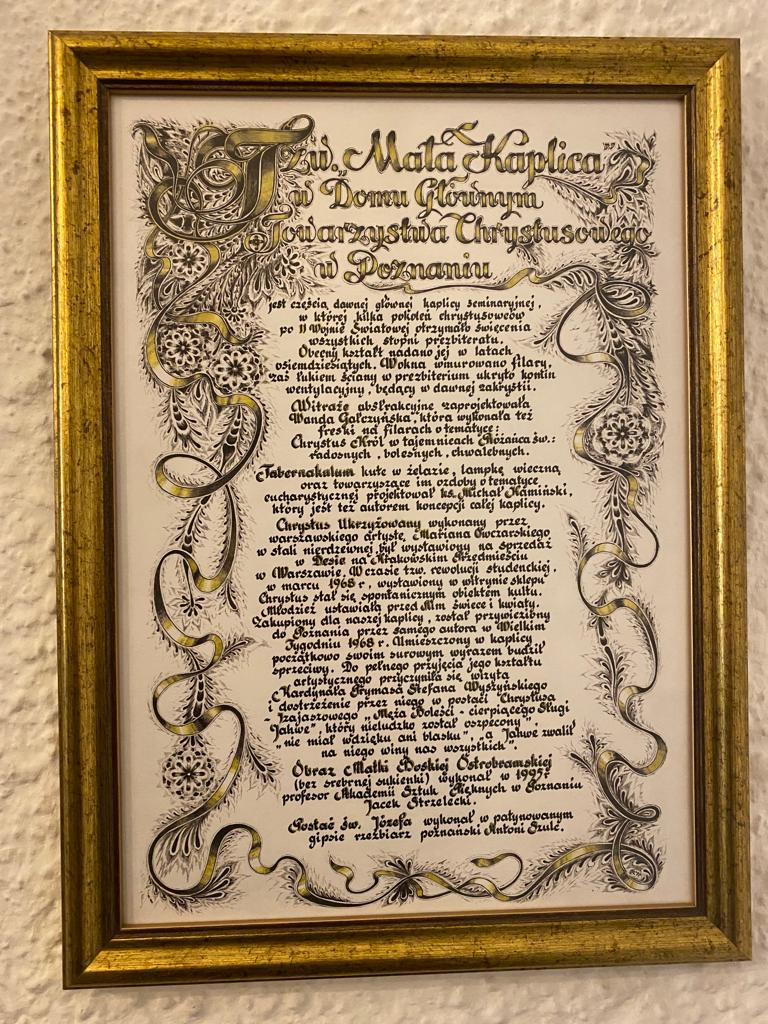 Tzw. „Mała Kaplica”
w Domu Głównym
Towarzystwa Chrystusowego
w Poznaniu
jest częścią dawnej głównej kaplicy seminaryjnej,
w której kilka pokoleń chrystusowców
po II Wojnie Światowej otrzymało święcenia
wszystkich stopni prezbiteratu.
Obecny kształt nadano jej w latach
osiemdziesiątych. Wokna wmurowano filary,
zaś łukiem ściany w prezbiterium ukryto komin
wentylacyjny, będący w dawnej zakrystii.
Witraże abstrakcyjne zaprojektowała
Wanda Gałczyńska, która wykonała też
freski na filarach o tematyce:
Chrystus Król w tajemnicach Różańca św.:
radosnych, bolesnych, chwalebnych.
Tabernakulum kute w żelazie, lampkę wieczną
oraz towarzyszące im ozdoby o tematyce
eucharystycznej projektował ks. Michał Kamiński,
który jest też autorem koncepcji całej kaplicy.
Chrystus Ukrzyżowany wykonany przez
warszawskiego artystę, Mariana Owczarskiego
w stali nierdzewnej był wystawiony na sprzedaż
w Desie na Krakowskim Przedmieściu
w Warszawie. W czasie tzw. rewolucji studenckiej,
w marcu 1968 r, wystawiony w witrynie sklepu
Chrystus stał się spontanicznym obiektem kultu.
Młodzież ustawiała przed Nim świece i kwiaty.
Zakupiony dla naszej kaplicy, został przywieziony
do Poznania przez samego autora w Wielkim
Tygodniu 1968 r. Umieszczony w kaplicy
początkowo swoim surowym wyrazem budził
sprzeciwy. Do pełnego przyjęcia jego kształtu
artystycznego przyczyniła się wizyta
Kardynała Prymasa Stefana Wyszyńskiego
i dostrzeżenie przez niego w postaci Chrystusa
- Izajaszowego „Męża Boleści - cierpiącego Sługi
Jahwe”, który nieludzko został oszpecony”,
„nie miał wdzięku ani blasku”, „a Jahwe zwalił
na niego winy nas wszystkich”.
Obraz Matki Boskiej Ostrobramskiej
(bez srebrnej sukienki) wykonał w 1995r
profesor Akademii Sztuk Pięknych w Poznaniu
Jacek Strzelecki.
Postać św. Józefa wykonał w patynowanym
gipsie rzeźbiarz poznański Antoni Szulc.